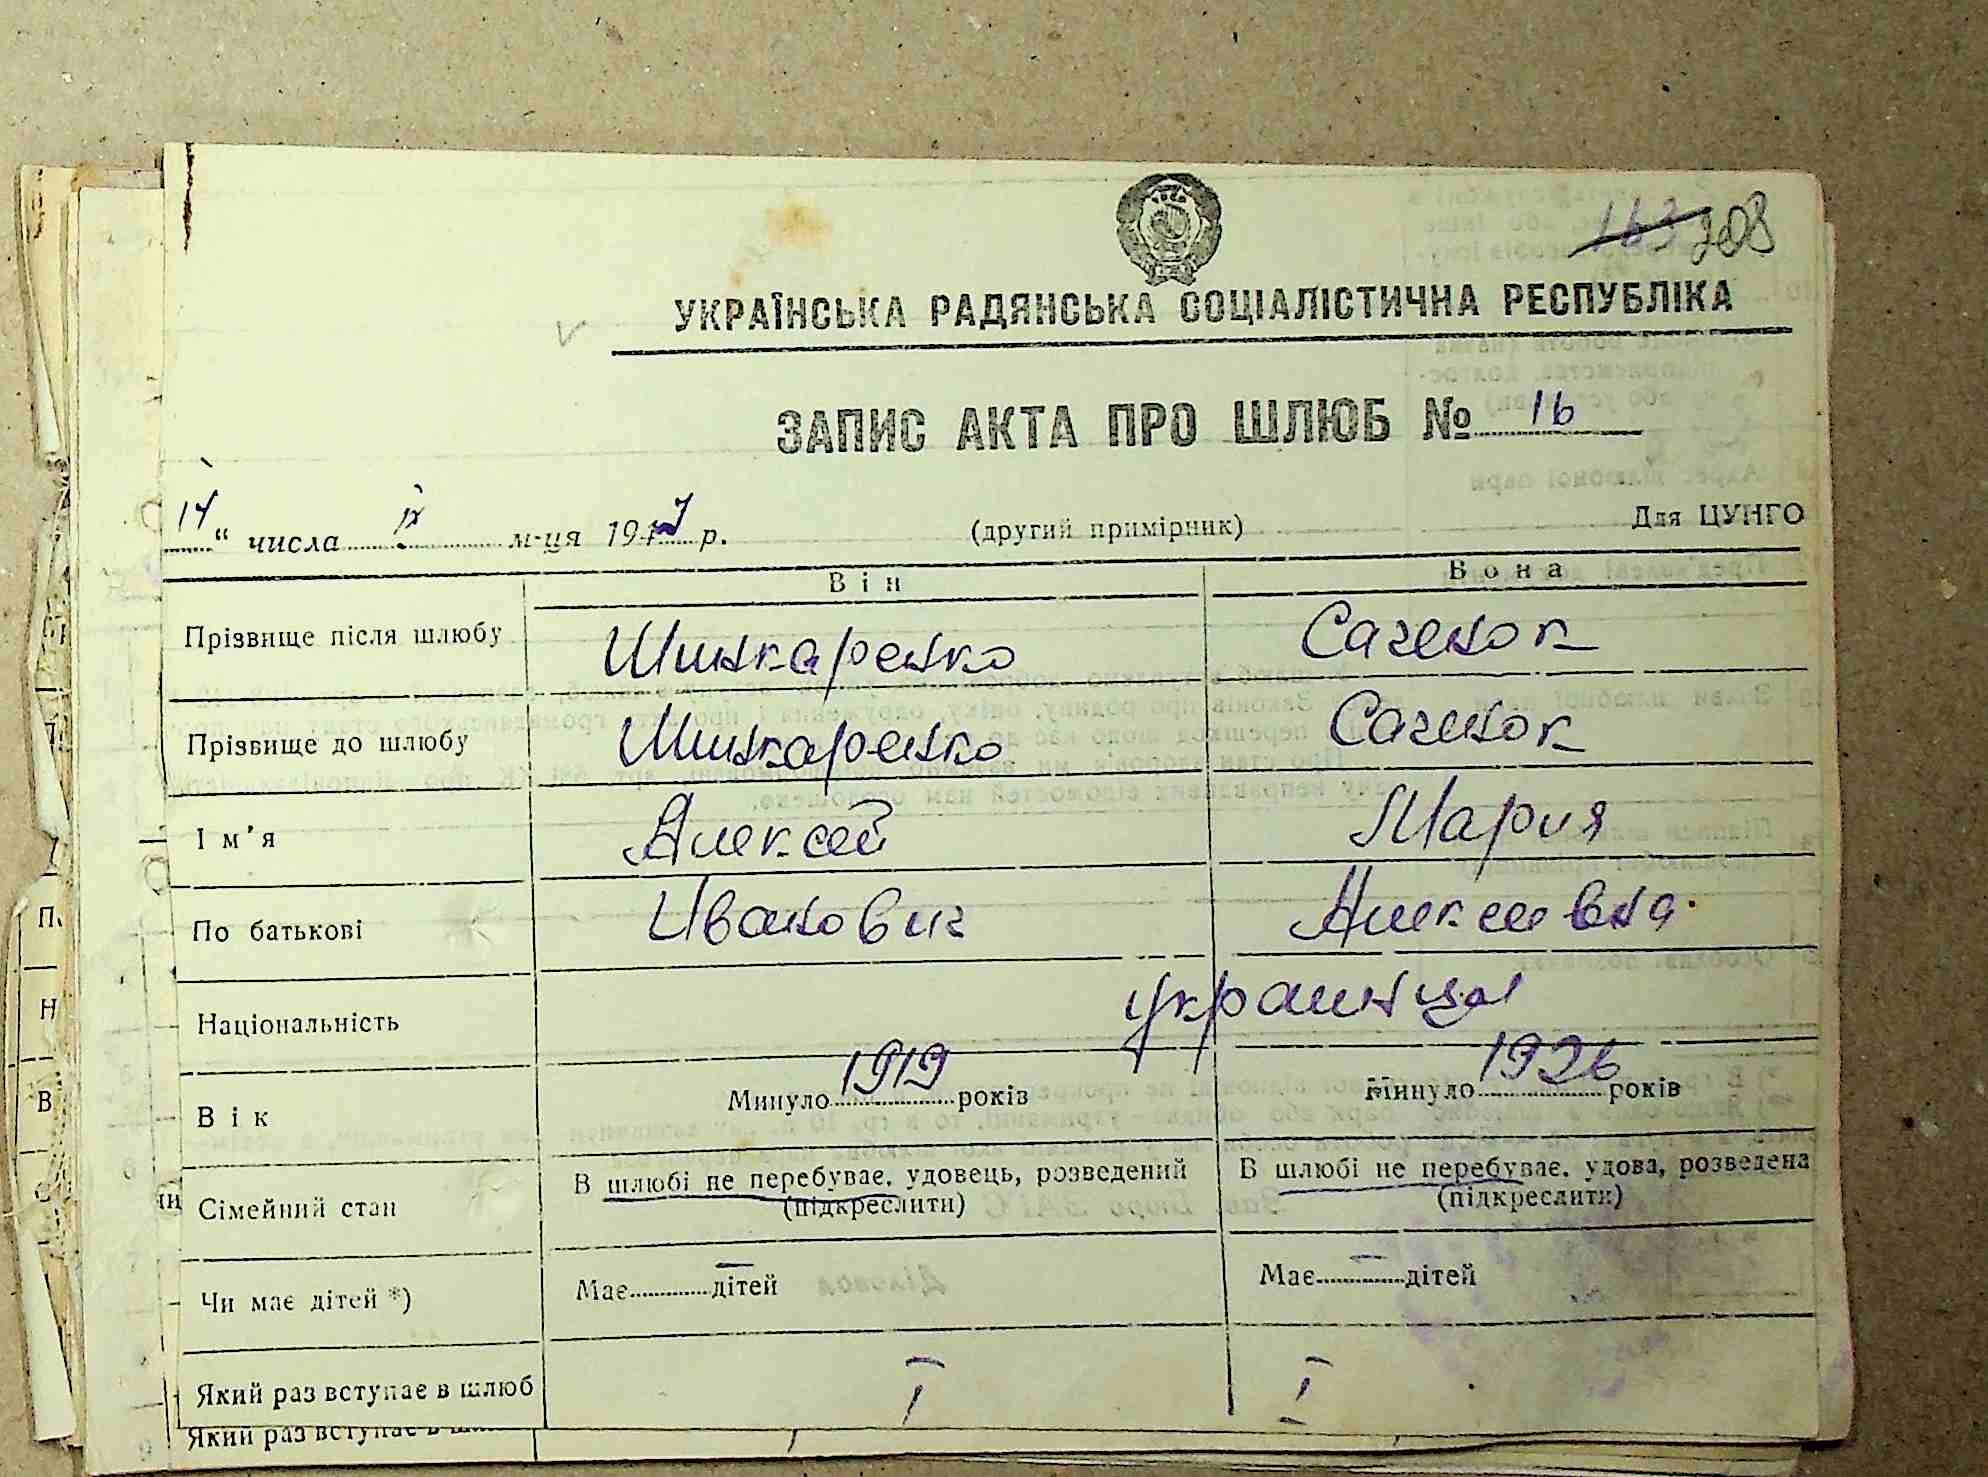 163 208
УКРАЇНСЬКА РАДЯНСЬКА СОЦІАЛІСТИЧНА РЕСПУБЛІКА
ЗАПИС АКТА ПРО ШЛЮБ № 16
14 " числа IX м-ця 1947 р. (другий примірник) Для ЦУНГО
Він Вона
Прізвище після шлюбу Шинкаренко Саченок
Прізвище до шлюбу Шинкаренко Саченок
Ім'я Алексей Мария
По батькові Иванович Алексеевна
Національність украинцы
Вік Минуло 1919 років Минуло 1926 років
Сімейний стан В шлюбі не перебуває, удовець, розведений (підкреслити) В шлюбі не перебуває, удова, розведена (підкреслити)
Чи має дітей *) Має — дітей Має — дітей
Який раз вступає в шлюб I I
Який раз вступає в